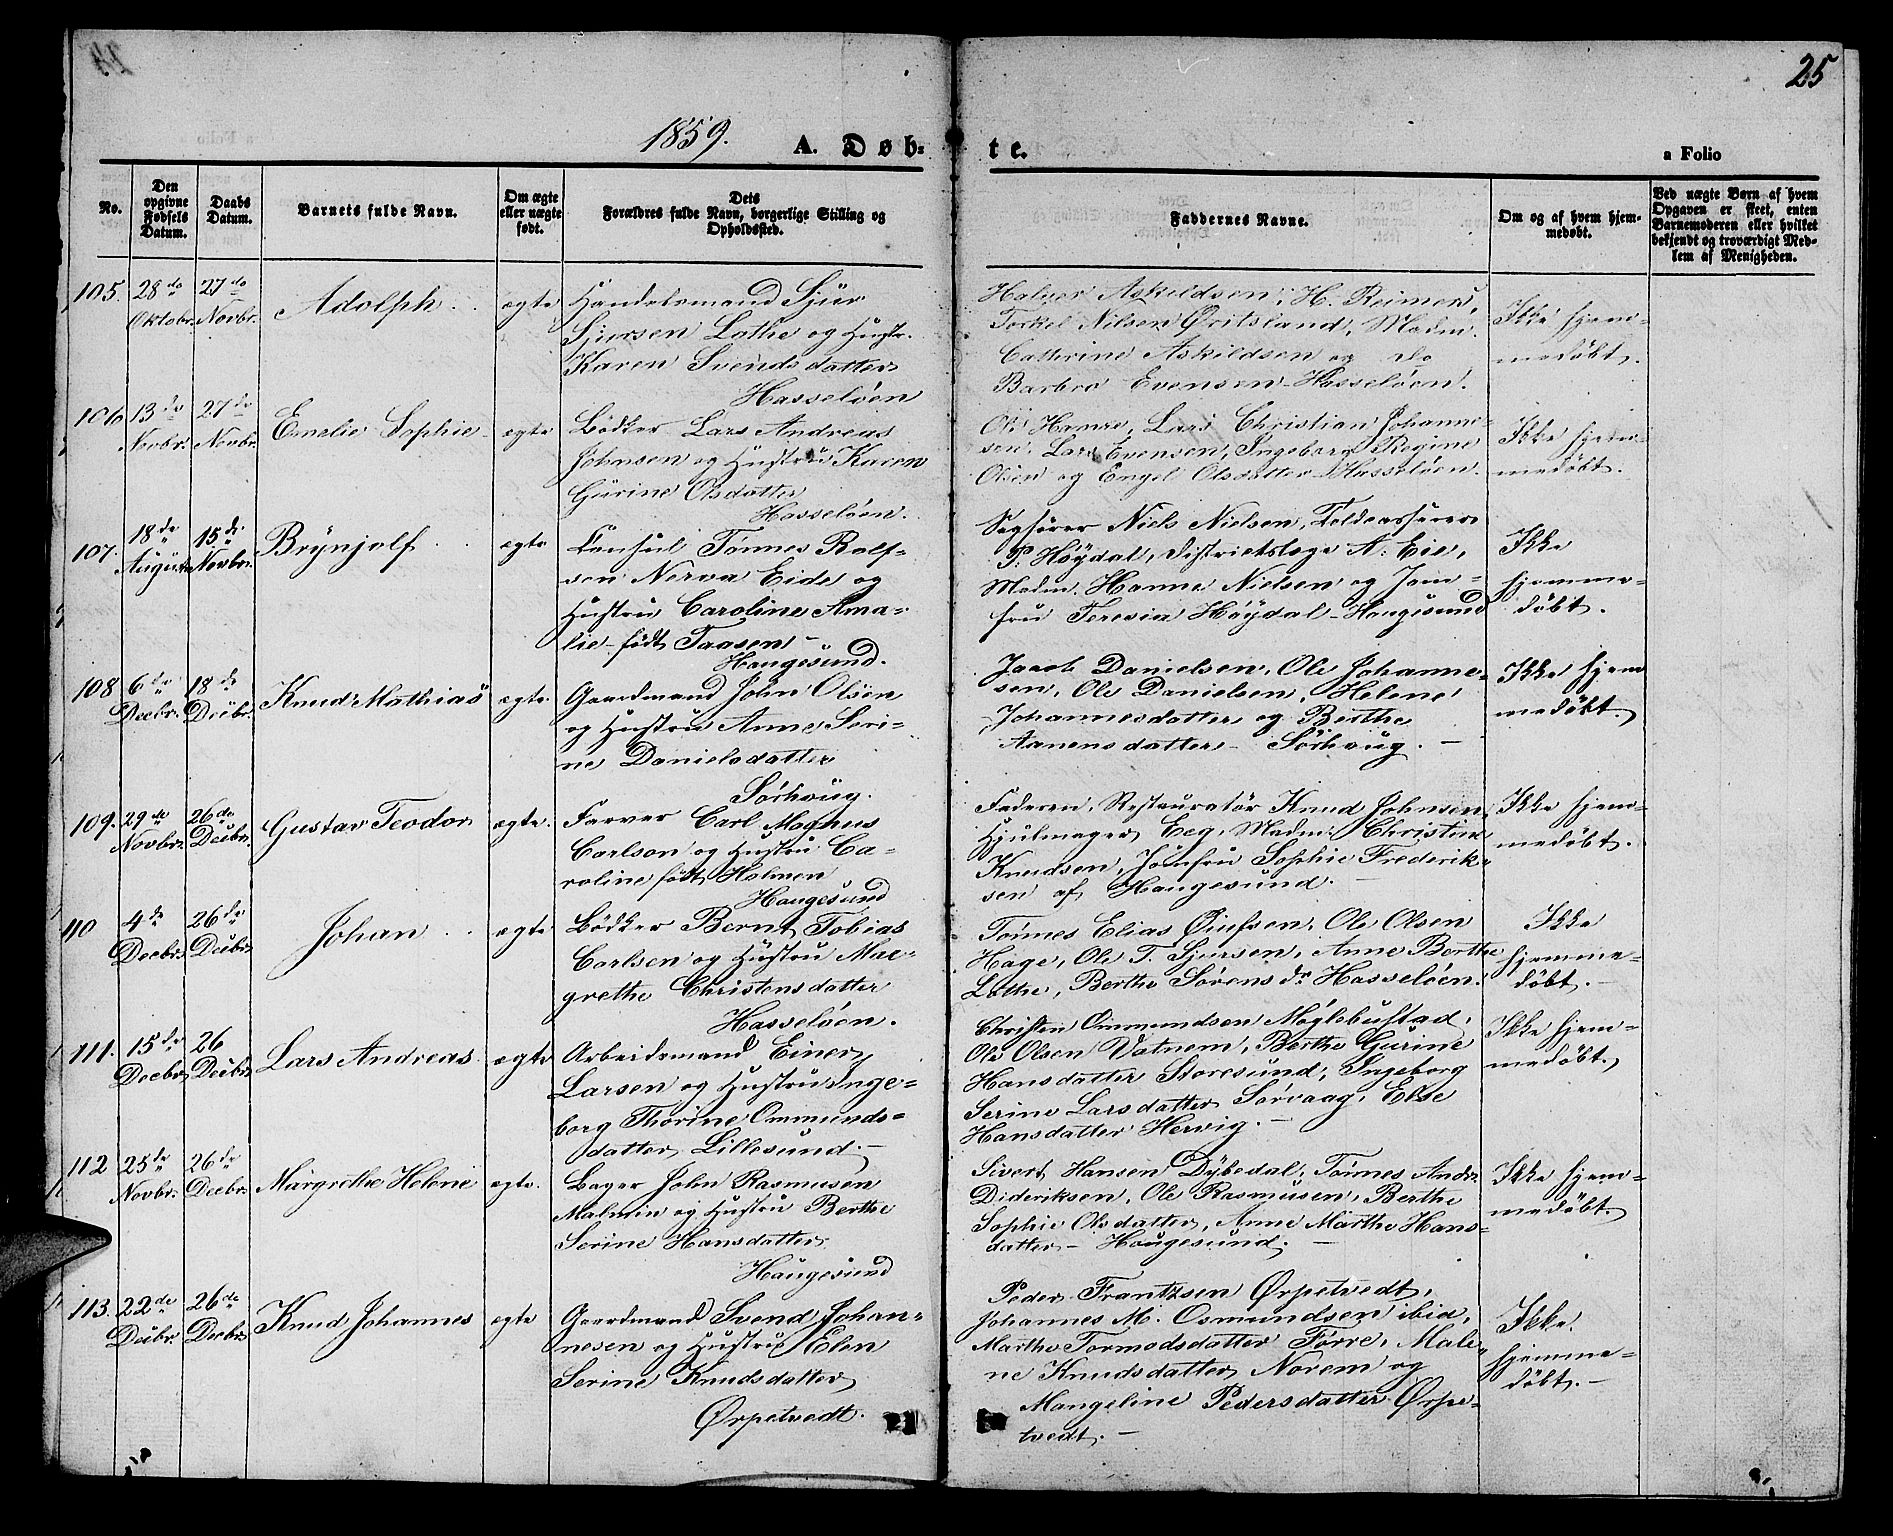 25
1859.
A. Døb-
te.
a Folio
No.
Den opgivne Fødsels Datum.
Daabs Datum.
Barnets fulde Navn.
Om ægte eller uægte født.
Dets Forældres fulde Navn, borgerlige Stilling og Opholdssted.
Faddernes Navne.
Om og af hvem hjemmedøbt.
Ved uægte Børn af hvem Opgaven er skeet, enten Barnemoderen eller hvilket bekjendt og troværdigt Medlem af Menigheden.
105. 28de Oktobr. 27de Novbr. Adolph ægte
Handelsmand Sjur
Sjursen Lothe og Hustr.
Karen Svendsdatter
Hasseløen
Holger Askildsen, H. Reimers,
Torkel Nilsen Øritsland, Madm.
Cathrine Askildsen og do
Barbro Evensen Hasseløen.
Ikke hjem-
medøbt.
106 13de Novbr. 27de Novbr. Emelie Sophie ægte
Bödker Lars Andreas
Johnsen og Hustru Karen
Gurine Olsdatter
Hasseløen.
Ols Hamre, Lars Christian Johanne-
sen, Lars Evensen, Ingeborg Regine
Olsen og Engel Olsdatter Hasseløen.
Ikke hjem-
medøbt.
107. 18de August 15de Novbr. Brynjolf ægte
Consul Tønnes Rolf-
sen Nerva Eide og
Hustru Caroline Ama-
lie født Taasen
Haugesund.
Sagfører Niels Nielsen, Toldcasserer
P. Høydal, Districtslæge A. Eie,
Madm. Hanne Nielsen og Jom-
fru Teresia Høydal - Haugesund
Ikke
hjemme-
døbt.
108 6de Decbr. 18de Decbr. Knud Mathias ægte
Gaardmand John Olsen
og Hustru Anne Seri-
ne Danielsdatter
Sørhaug.
Jacob Danielsen, Ole Johanne-
sen, Ole Danielsen, Helene
Johannesdatter og Berthe
Aanensdatter - Sørhaug. -
Ikke hjem
medøbt.
109. 29de Novbr. 26de Decbr. Gustav Teodor ægte.
Farver Carl Magnus
Carlson og Hustru Ca-
roline født Holmen
Haugesund
Faderen, Restauratør Knud Johnsen,
Hjulmager Eeg, Madm. Christine
Knudsen, Jomfru Sophie Frederik-
sen af Haugesund. -
Ikke hjem-
medøbt.
110 4de Decbr. 26de Decbr. Johan ægte
Bödker Bernt Tobias
Carlsen og Hustru Mar-
grethe Christensdatter
Hasseløen.
Tønnes Elias Øiufsen, Ole Olsen
Hage, Ole T. Sjursen, Anne Berthe
Lothe, Berthe Sørens dr. Hasseløen.
Ikke
hjemme-
døbt. -
111. 15de Decbr. 26 Decbr. Lars Andreas ægte
Arbeidsmand Einer
Larsen og Hustru Inge-
borg Thorine Ommunds-
datter Lillesund. -
Christen Ommundsen Møglebustad,
Ole Olsen Vatnem, Berthe Gurine
Hansdatter Storesund, Ingeborg
Serine Larsdatter Sørvaag, Else
Hansdatter Hervig. -
Ikke hjem-
medøbt.
112 25de Novbr. 26de Decbr. Margrethe Helene ægte.
Bager John Rasmusen
Malmin og Hustru Berthe
Serine Hansdatter
Haugesund
Sivert Hansen Dybedal, Tønnes Andr.
Dideriksen, Ole Rasmusen, Berthe
Sophie Olsdatter, Anne Marthe Hans-
datter - Haugesund. -
Ikke hjem-
medøbt.
113. 22de Decbr. 26de Decbr. Knud Johannes ægte
Gaardmand Svend Johan-
nesen og Hustru Elen
Serine Knudsdatter
Ørpetvedt.
Peder Frantzsen Ørpetvedt,
Johannes M. Osmundsen ibid,
Marthe Tormodsdatter Førre, Male-
ne Knudsdatter Norem og
Mangeline Pedersdatter Ørpe-
tvedt. -
Ikke
hjemme-
døbt. -